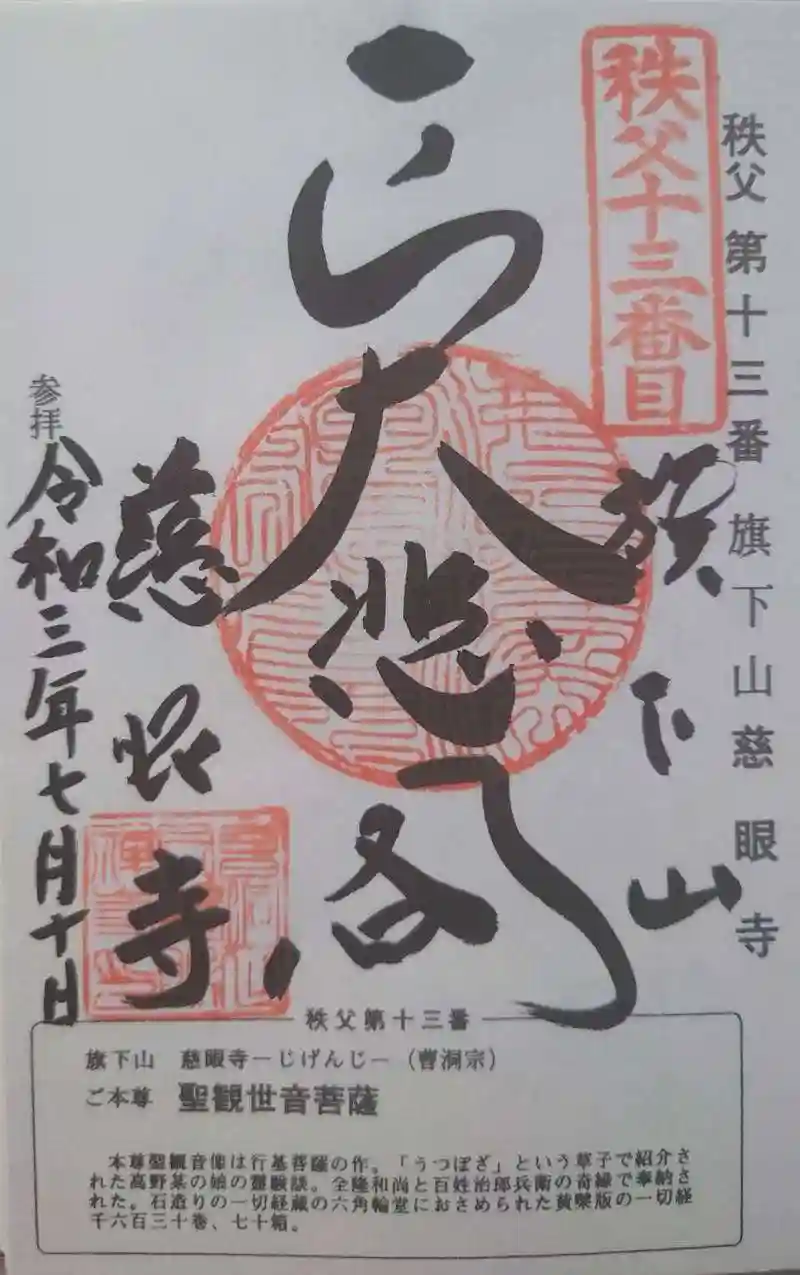 秩父第十三番 旗下山慈眼寺
秩父十三番目
旗下山
大悲閣
慈眼寺
参拝
令和三年七月十日
秩父第十三番
旗下山 慈眼寺－じげんじ－（曹洞宗）
ご本尊 聖観世音菩薩
本尊聖観音像は行基菩薩の作。「うつぼざ」という草子で紹介さ
れた高野某の娘の霊験談。全隆和尚と百姓治郎兵衛の奇縁で奉納さ
れた。石造りの一切経蔵の六角輪堂におさめられた黄檗版の一切経
千六百三十巻、七十箱。